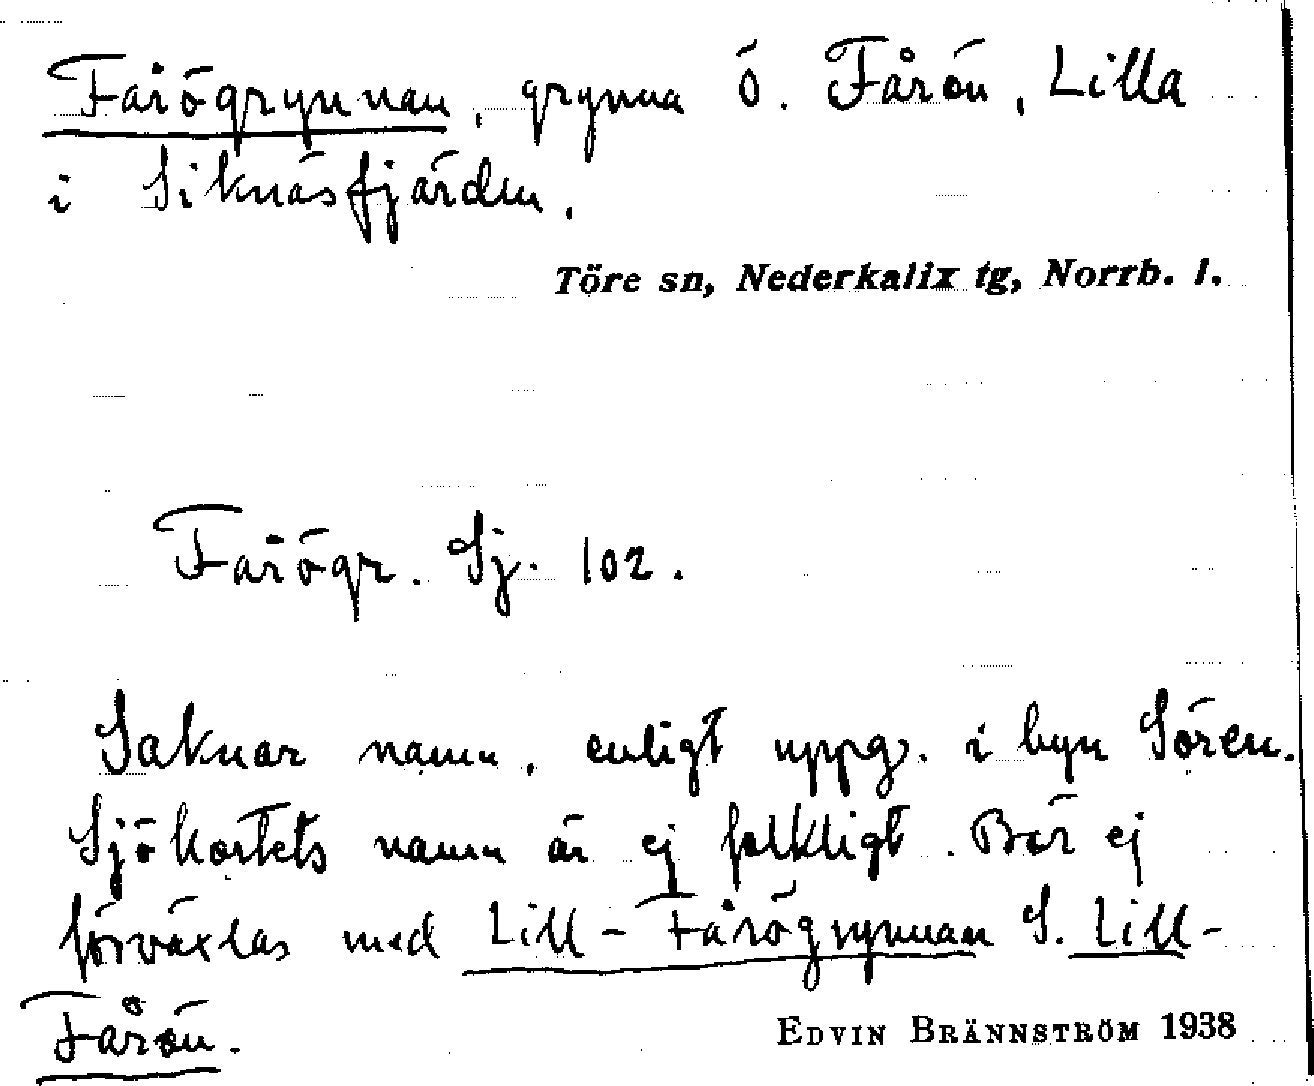 Fårögrynnan, grynna ö. Fårön, Lilla
i Siknäsfjärden.
Töre sn, Nederkalix tg, Norrb. l.
Fårögr. Sj. 102.
Saknar namn, enligt uppg. i byn Sören.
Sjökortets namn är ej folkligt. Bör ej
förväxlas med Lill-Fårögrynnan S. Lill-
Fårön.
EDVIN BRÄNNSTRÖM 1938